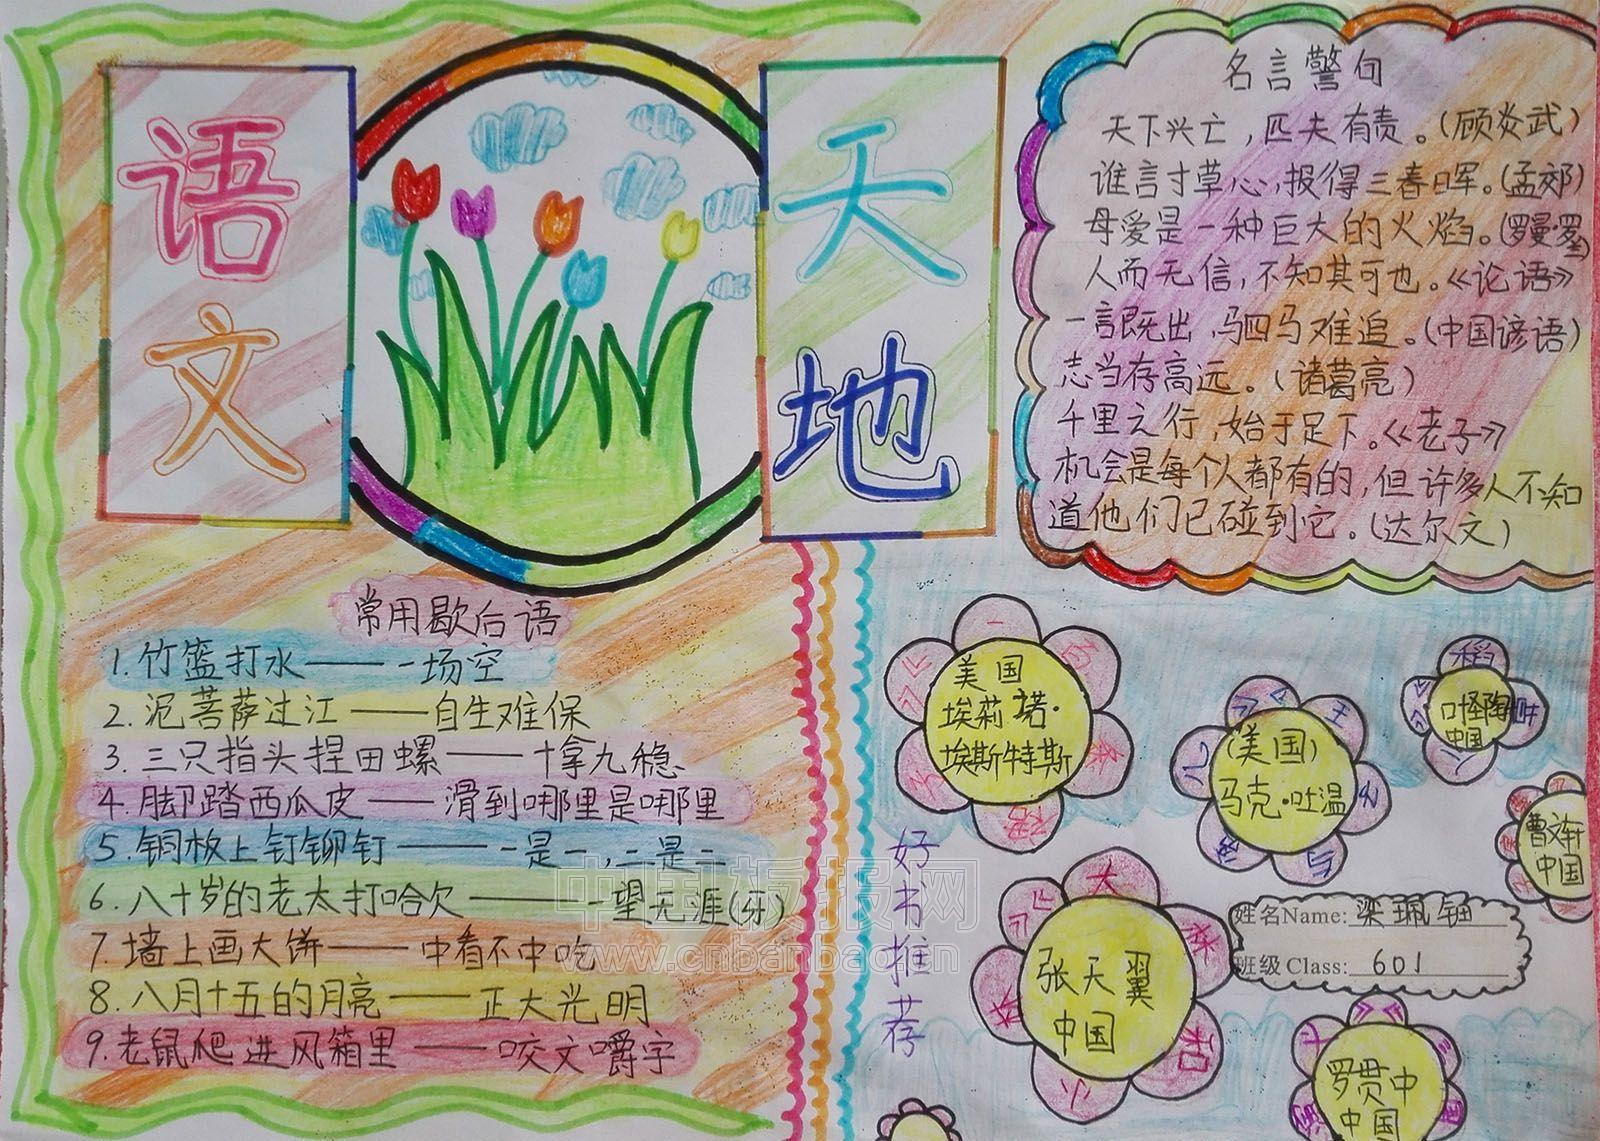 语文
天地
名言警句
天下兴亡，匹夫有责。（顾炎武）
谁言寸草心，报得三春晖。（孟郊）
母爱是一种巨大的火焰。（罗曼·罗兰）
人而无信，不知其可也。《论语》
一言既出，驷马难追。（中国谚语）
志当存高远。（诸葛亮）
千里之行，始于足下。《老子》
机会是每个人都有的，但许多人不知
道他们已碰到它。（达尔文）
常用歇后语
1.竹篮打水——一场空
2.泥菩萨过江——自生难保
3.三只指头捏田螺——十拿九稳
4.脚踏西瓜皮——滑到哪里是哪里
5.铜板上钉铆钉——一是一，二是二
6.八十岁的老太打哈欠——一望无涯（牙）
7.墙上画大饼——中看不中吃
8.八月十五的月亮——正大光明
9.老鼠爬进风箱里——咬文嚼字
好书推荐
美国
埃莉诺·
埃斯特斯
（美国）
马克·吐温
叶圣陶
中国
曹文轩
中国
张天翼
中国
罗贯中
中国
姓名Name:
班级Class: 601
中国板报网
www.cnbanbao.cn